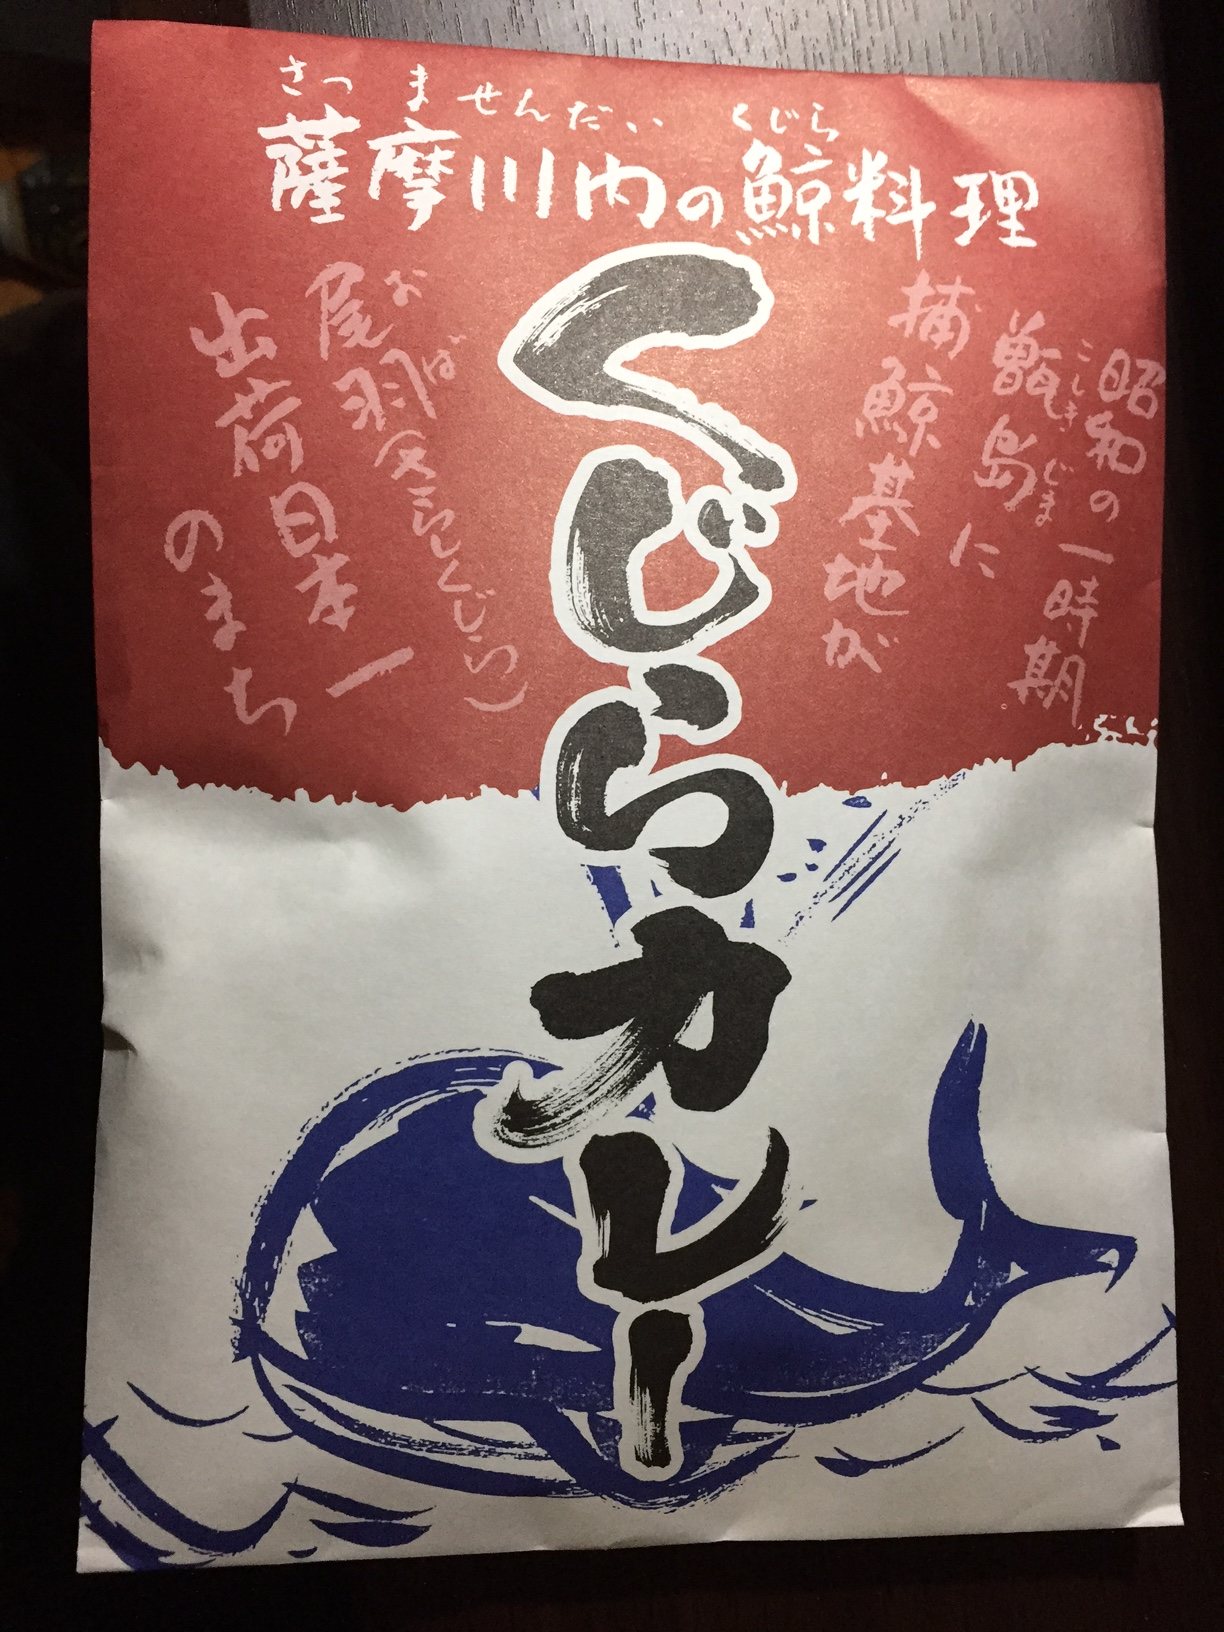 さつませんだい くじら
薩摩川内の鯨料理
くじらカレー
昭和の一時期
こしきじま
甑島に
捕鯨基地が
おば
尾羽(さらしくじら)
出荷日本一
のまち